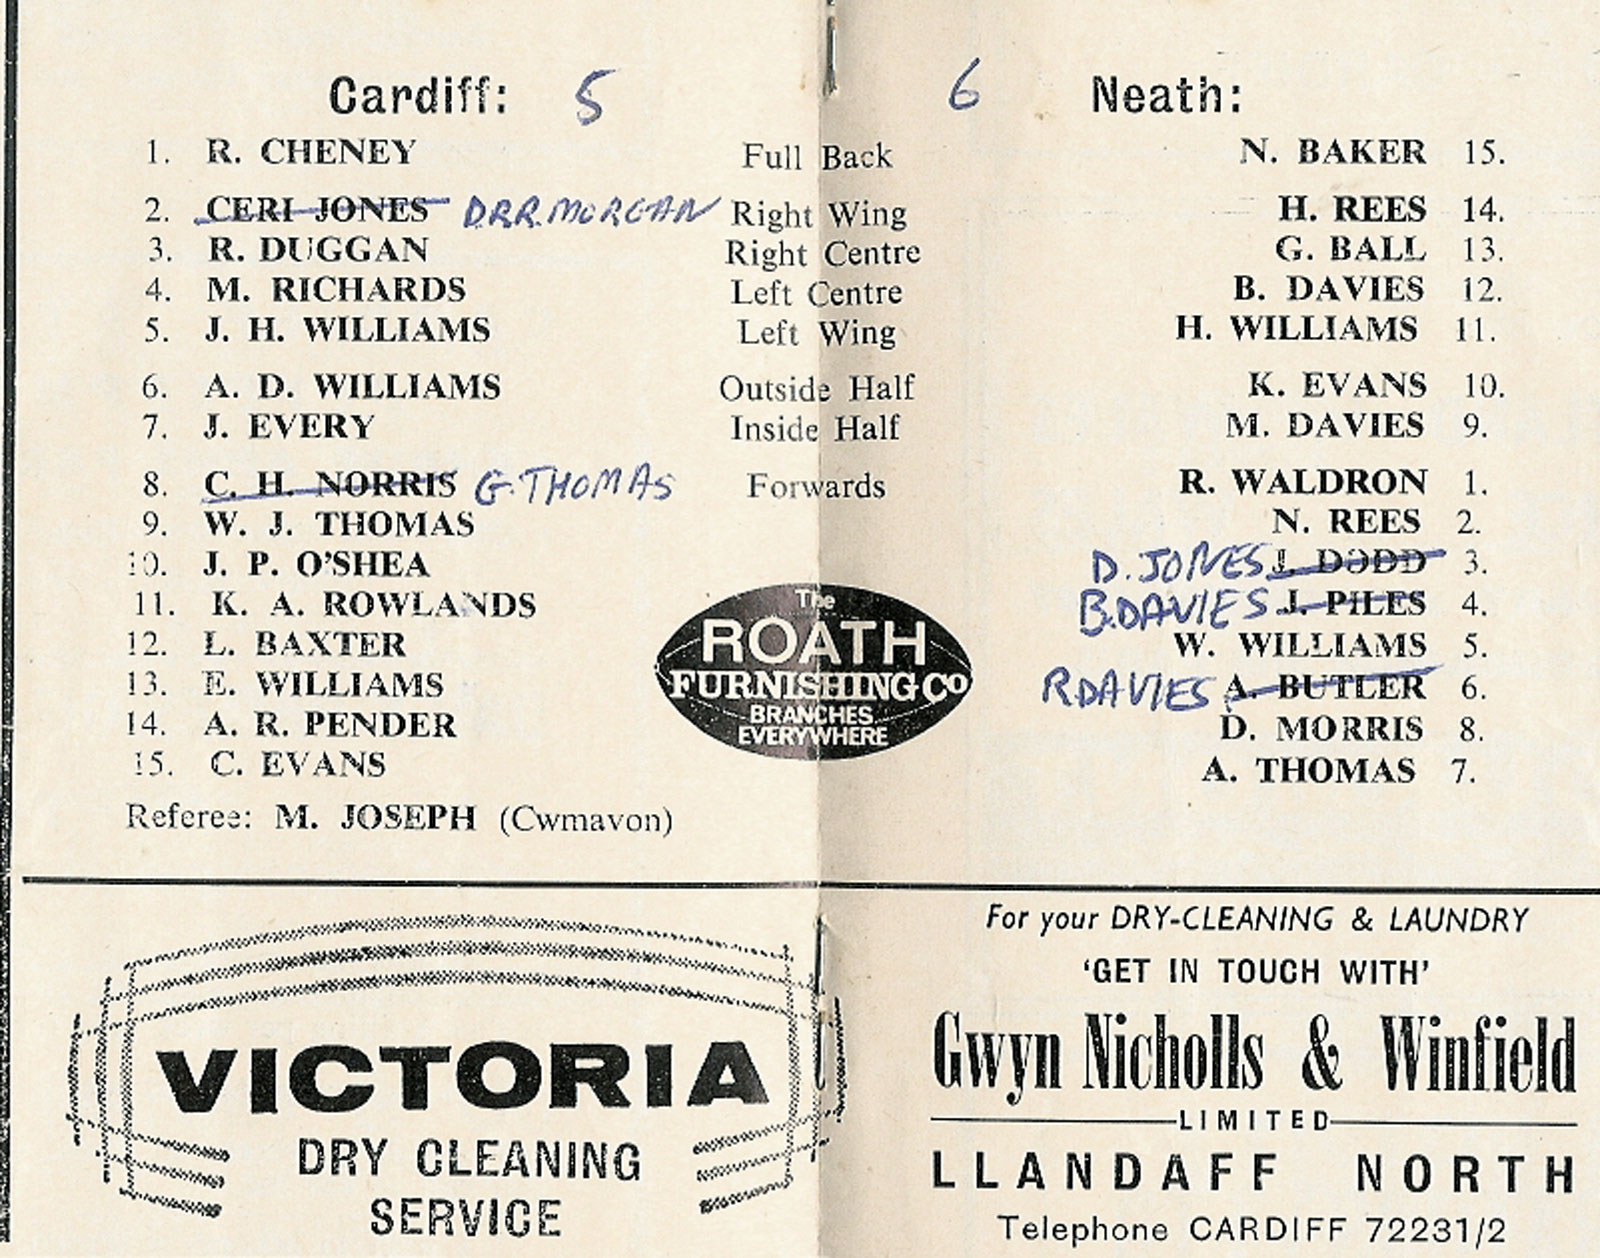 Cardiff: 5 6 Neath:
1. R. CHENEY Full Back N. BAKER 15.
2. CERI JONES D.R.R. MORGAN Right Wing H. REES 14.
3. R. DUGGAN Right Centre G. BALL 13.
4. M. RICHARDS Left Centre B. DAVIES 12.
5. J. H. WILLIAMS Left Wing H. WILLIAMS 11.
6. A. D. WILLIAMS Outside Half K. EVANS 10.
7. J. EVERY Inside Half M. DAVIES 9.
8. C. H. NORRIS G. THOMAS Forwards R. WALDRON 1.
9. W. J. THOMAS N. REES 2.
10. J. P. O'SHEA D. JONES J. DODD 3.
11. K. A. ROWLANDS B. DAVIES J. PILES 4.
12. L. BAXTER W. WILLIAMS 5.
13. E. WILLIAMS R DAVIES A. BUTLER 6.
14. A. R. PENDER D. MORRIS 8.
15. C. EVANS A. THOMAS 7.
The
ROATH
FURNISHING CO
BRANCHES
EVERYWHERE
Referee: M. JOSEPH (Cwmavon)
VICTORIA
DRY CLEANING
SERVICE
For your DRY-CLEANING & LAUNDRY
'GET IN TOUCH WITH'
Gwyn Nicholls & Winfield
LIMITED
LLANDAFF NORTH
Telephone CARDIFF 72231/2